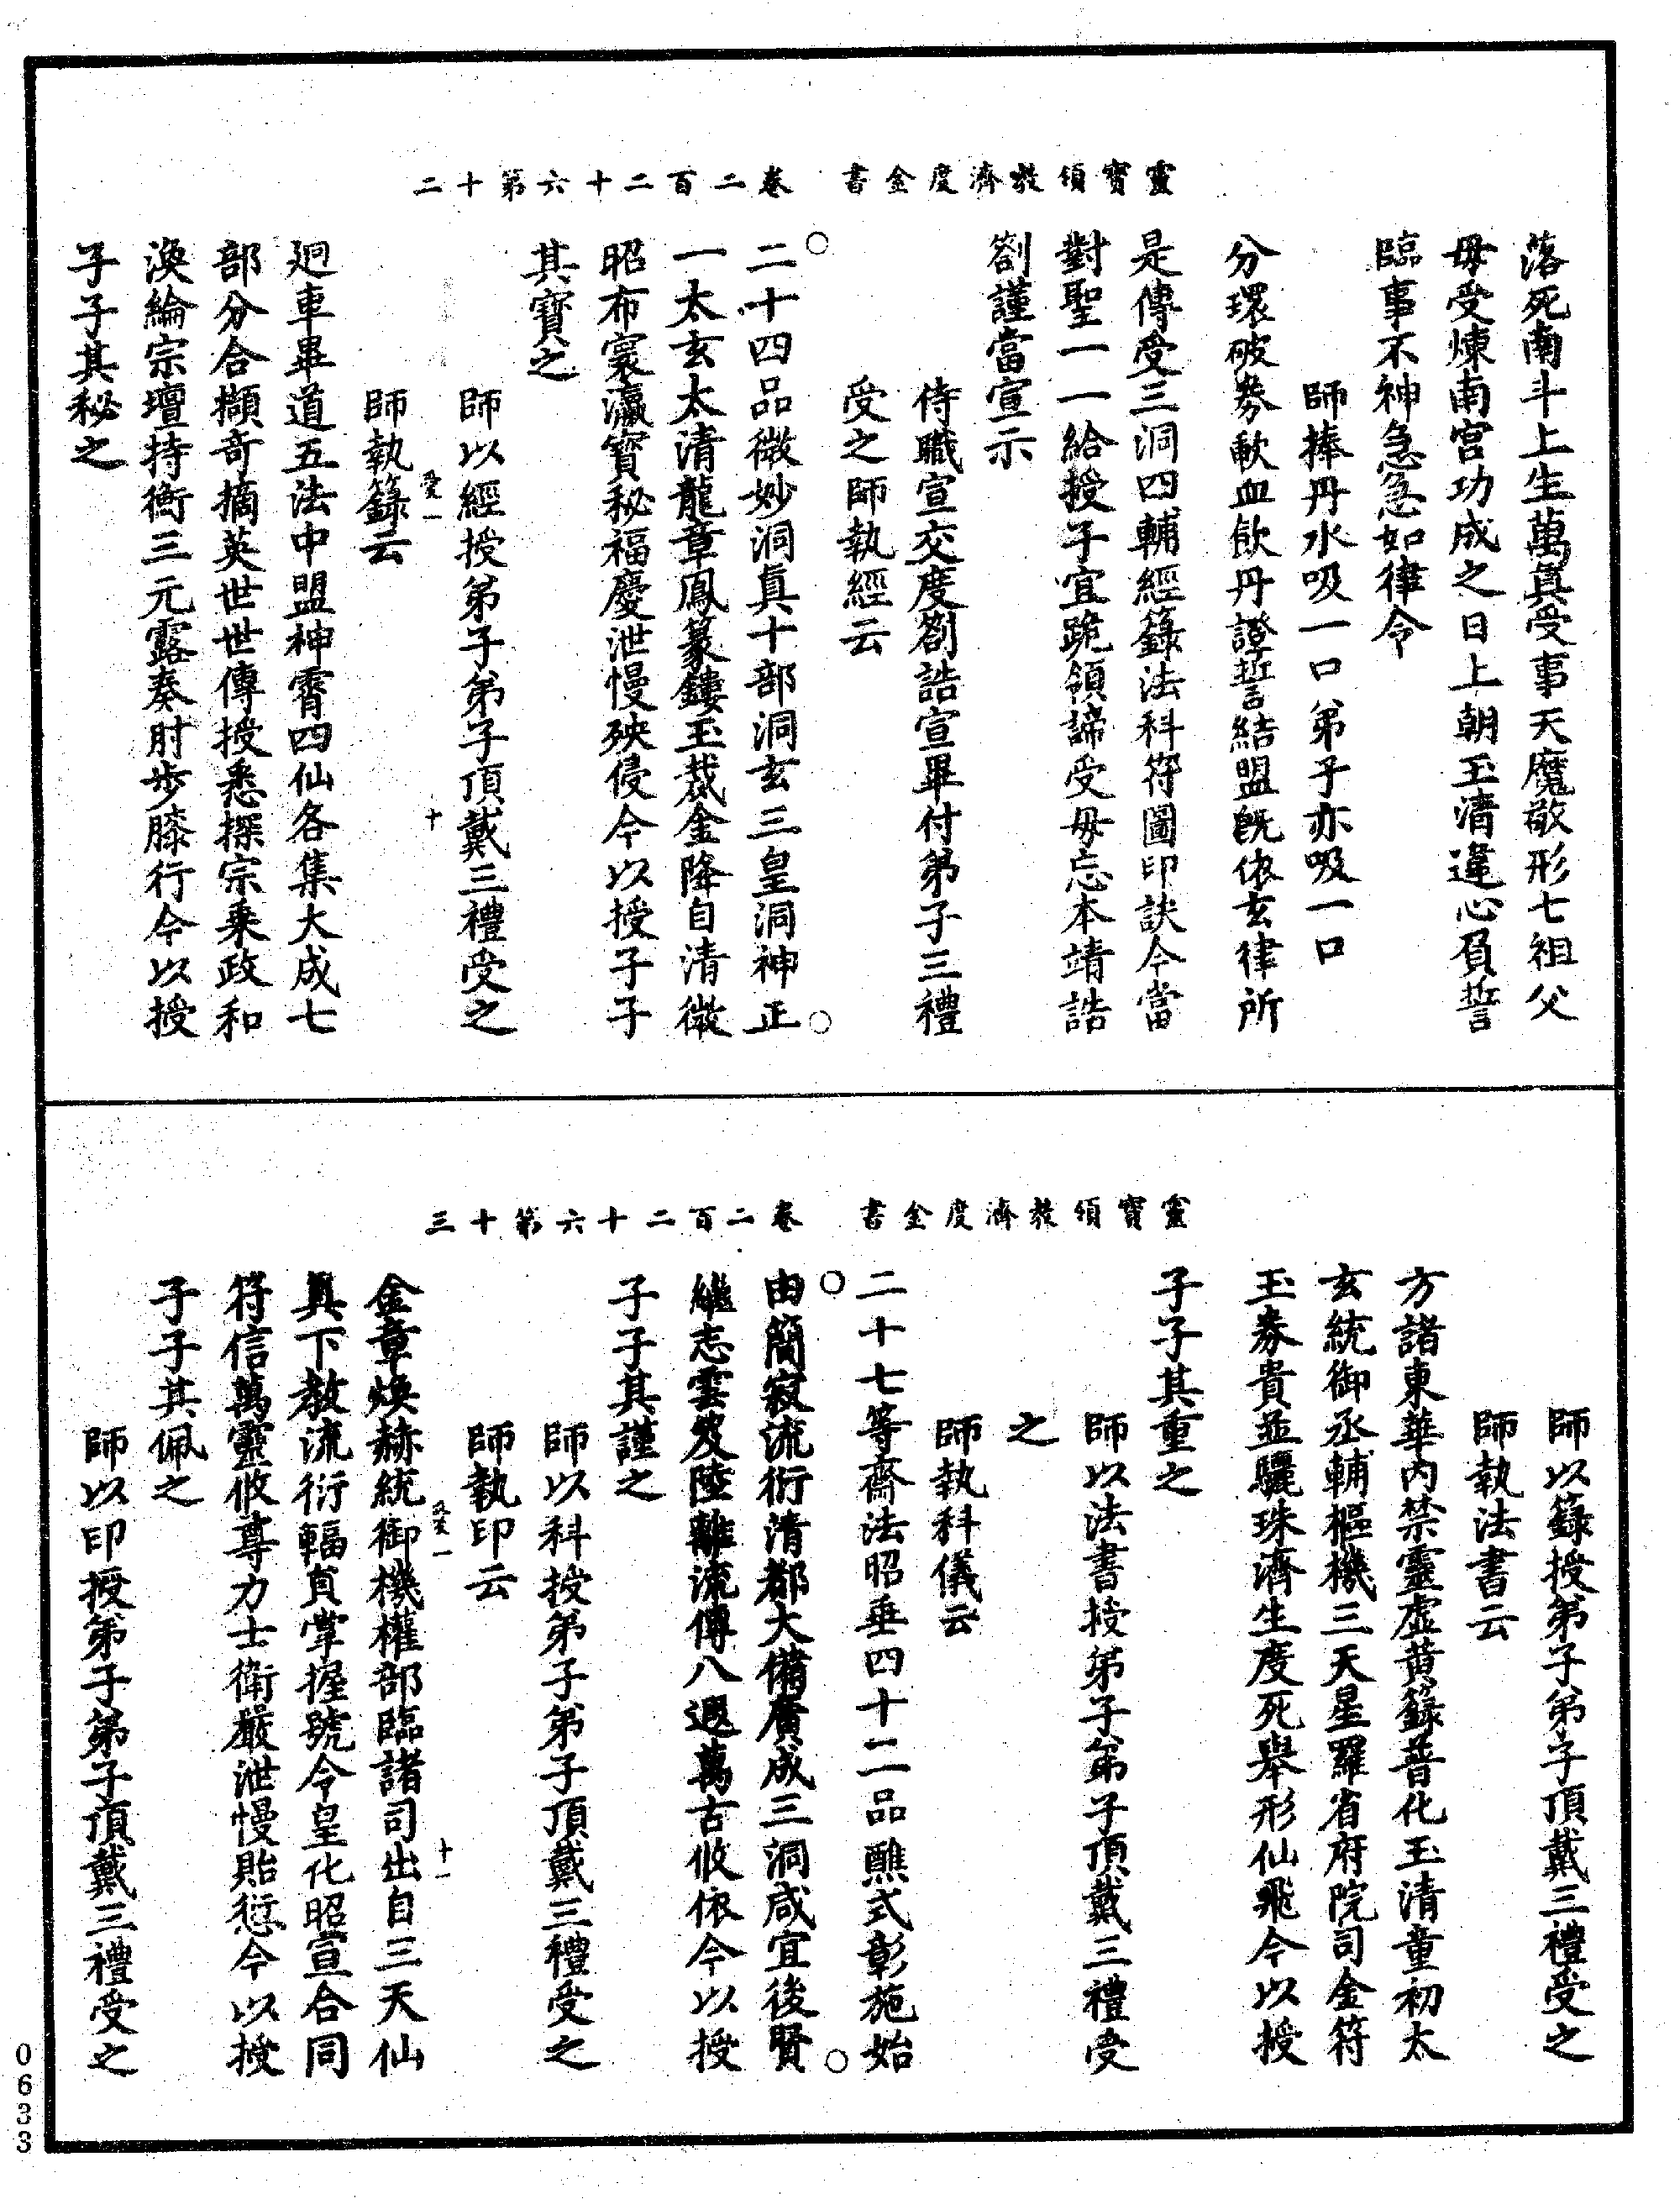 靈寶領教濟度金書 卷二百二十六第十二
落死南斗上生萬眞受事天魔敬形七祖父
母受煉南宮功成之日上朝玉清違心負誓
臨事不神急急如律令
師捧丹水吸一口弟子亦吸一口
分環破劵歃血飲丹證誓結盟旣依玄律所
是傳受三洞四輔經籙法科符圖印訣今當
對聖一一給授子宜跪領諦受毋忘本靖誥
劄謹當宣示
侍職宣交度劄誥宣畢付弟子三禮
受之師執經云
○二十四品微妙洞眞十部洞玄三皇洞神正○
一太玄太清龍章鳳篆鏤玉裁金降自清微
昭布寰瀛寳秘福慶泄慢殃侵今以授子子
其寳之
師以經授弟子弟子頂戴三禮受之
受一 十
師執籙云
廻車畢道五法中盟神霄四仙各集大成七
部分合擷奇摘英世世傳授悉探宗乘政和
渙綸宗壇持衡三元露奏肘步膝行今以授
子子其秘之
靈寶領教濟度金書 卷二百二十六第十三
師以籙授弟子弟子頂戴三禮受之
師執法書云
方諸東華內禁靈虛黃籙普化玉清童初太
玄統御丞輔樞機三天星羅省府院司金符
玉劵貴並驪珠濟生度死舉形仙飛今以授
子子其重之
師以法書授弟子弟子頂戴三禮受
之
師執科儀云
二十七等齋法昭垂四十二品醮式彰施始
○由簡寂流衍清都大備廣成三洞咸宜後賢○
繼志雲笈陸離流傳八遐萬古攸依今以授
子子其謹之
師以科授弟子弟子頂戴三禮受之
師執印云
受一 十一
金章煥赫統御機權部臨諸司出自三天仙
眞下教流衍輻員掌握號令皇化昭宣合同
符信萬靈攸尊力士衛嚴泄慢貽愆今以授
子子其佩之
師以印授弟子弟子頂戴三禮受之
0633